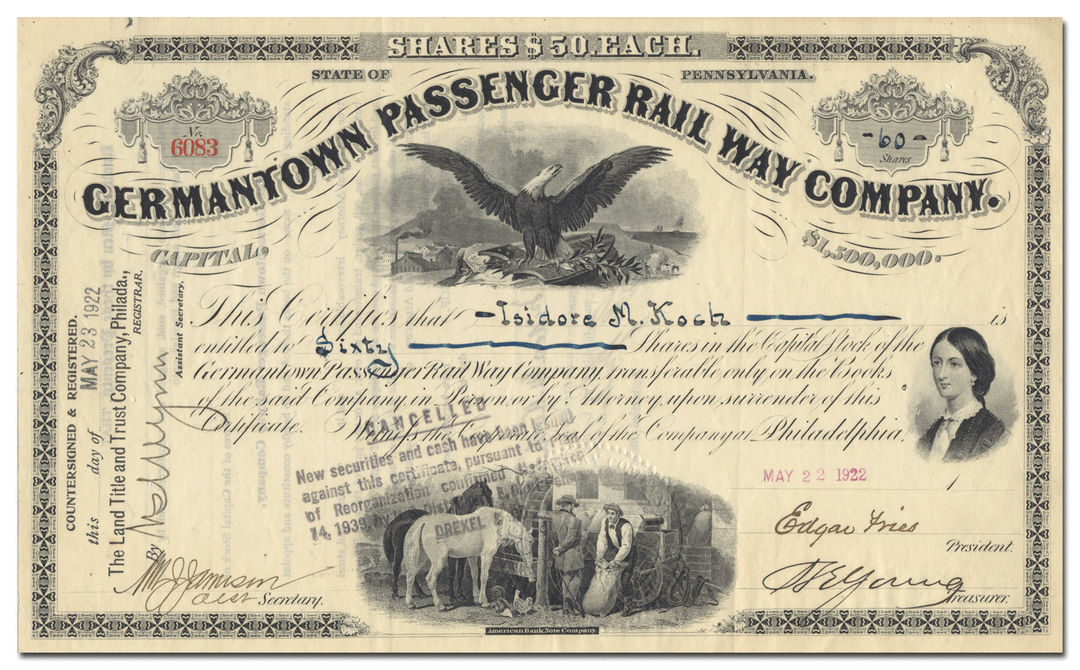 SHARES $50. EACH.
STATE OF PENNSYLVANIA.
No.
6083
-60-
Shares
GERMANTOWN PASSENGER RAIL WAY COMPANY.
CAPITAL,
$1,500,000.
This Certifies that -Isidore M. Koch is
entitled to Sixty Shares in the Capital Stock of the
Germantown Passenger Rail Way Company, transferable only on the Books
of the said Company, in Person, or by Attorney, upon surrender of this
Certificate. Witness the Corporate seal of the Company at Philadelphia,
MAY 22 1922
1
Edgar Fries
President.
Treasurer.
CANCELLED
New securities and cash have been issued
against this certificate, pursuant to
of Reorganization confirmed
14, 1939, by
DREXEL &
COUNTERSIGNED & REGISTERED.
this day of MAY 23 1922
The Land Title and Trust Company, Philada.,
REGISTRAR.
By
Assistant Secretary.
Secretary.
American Bank Note Company.